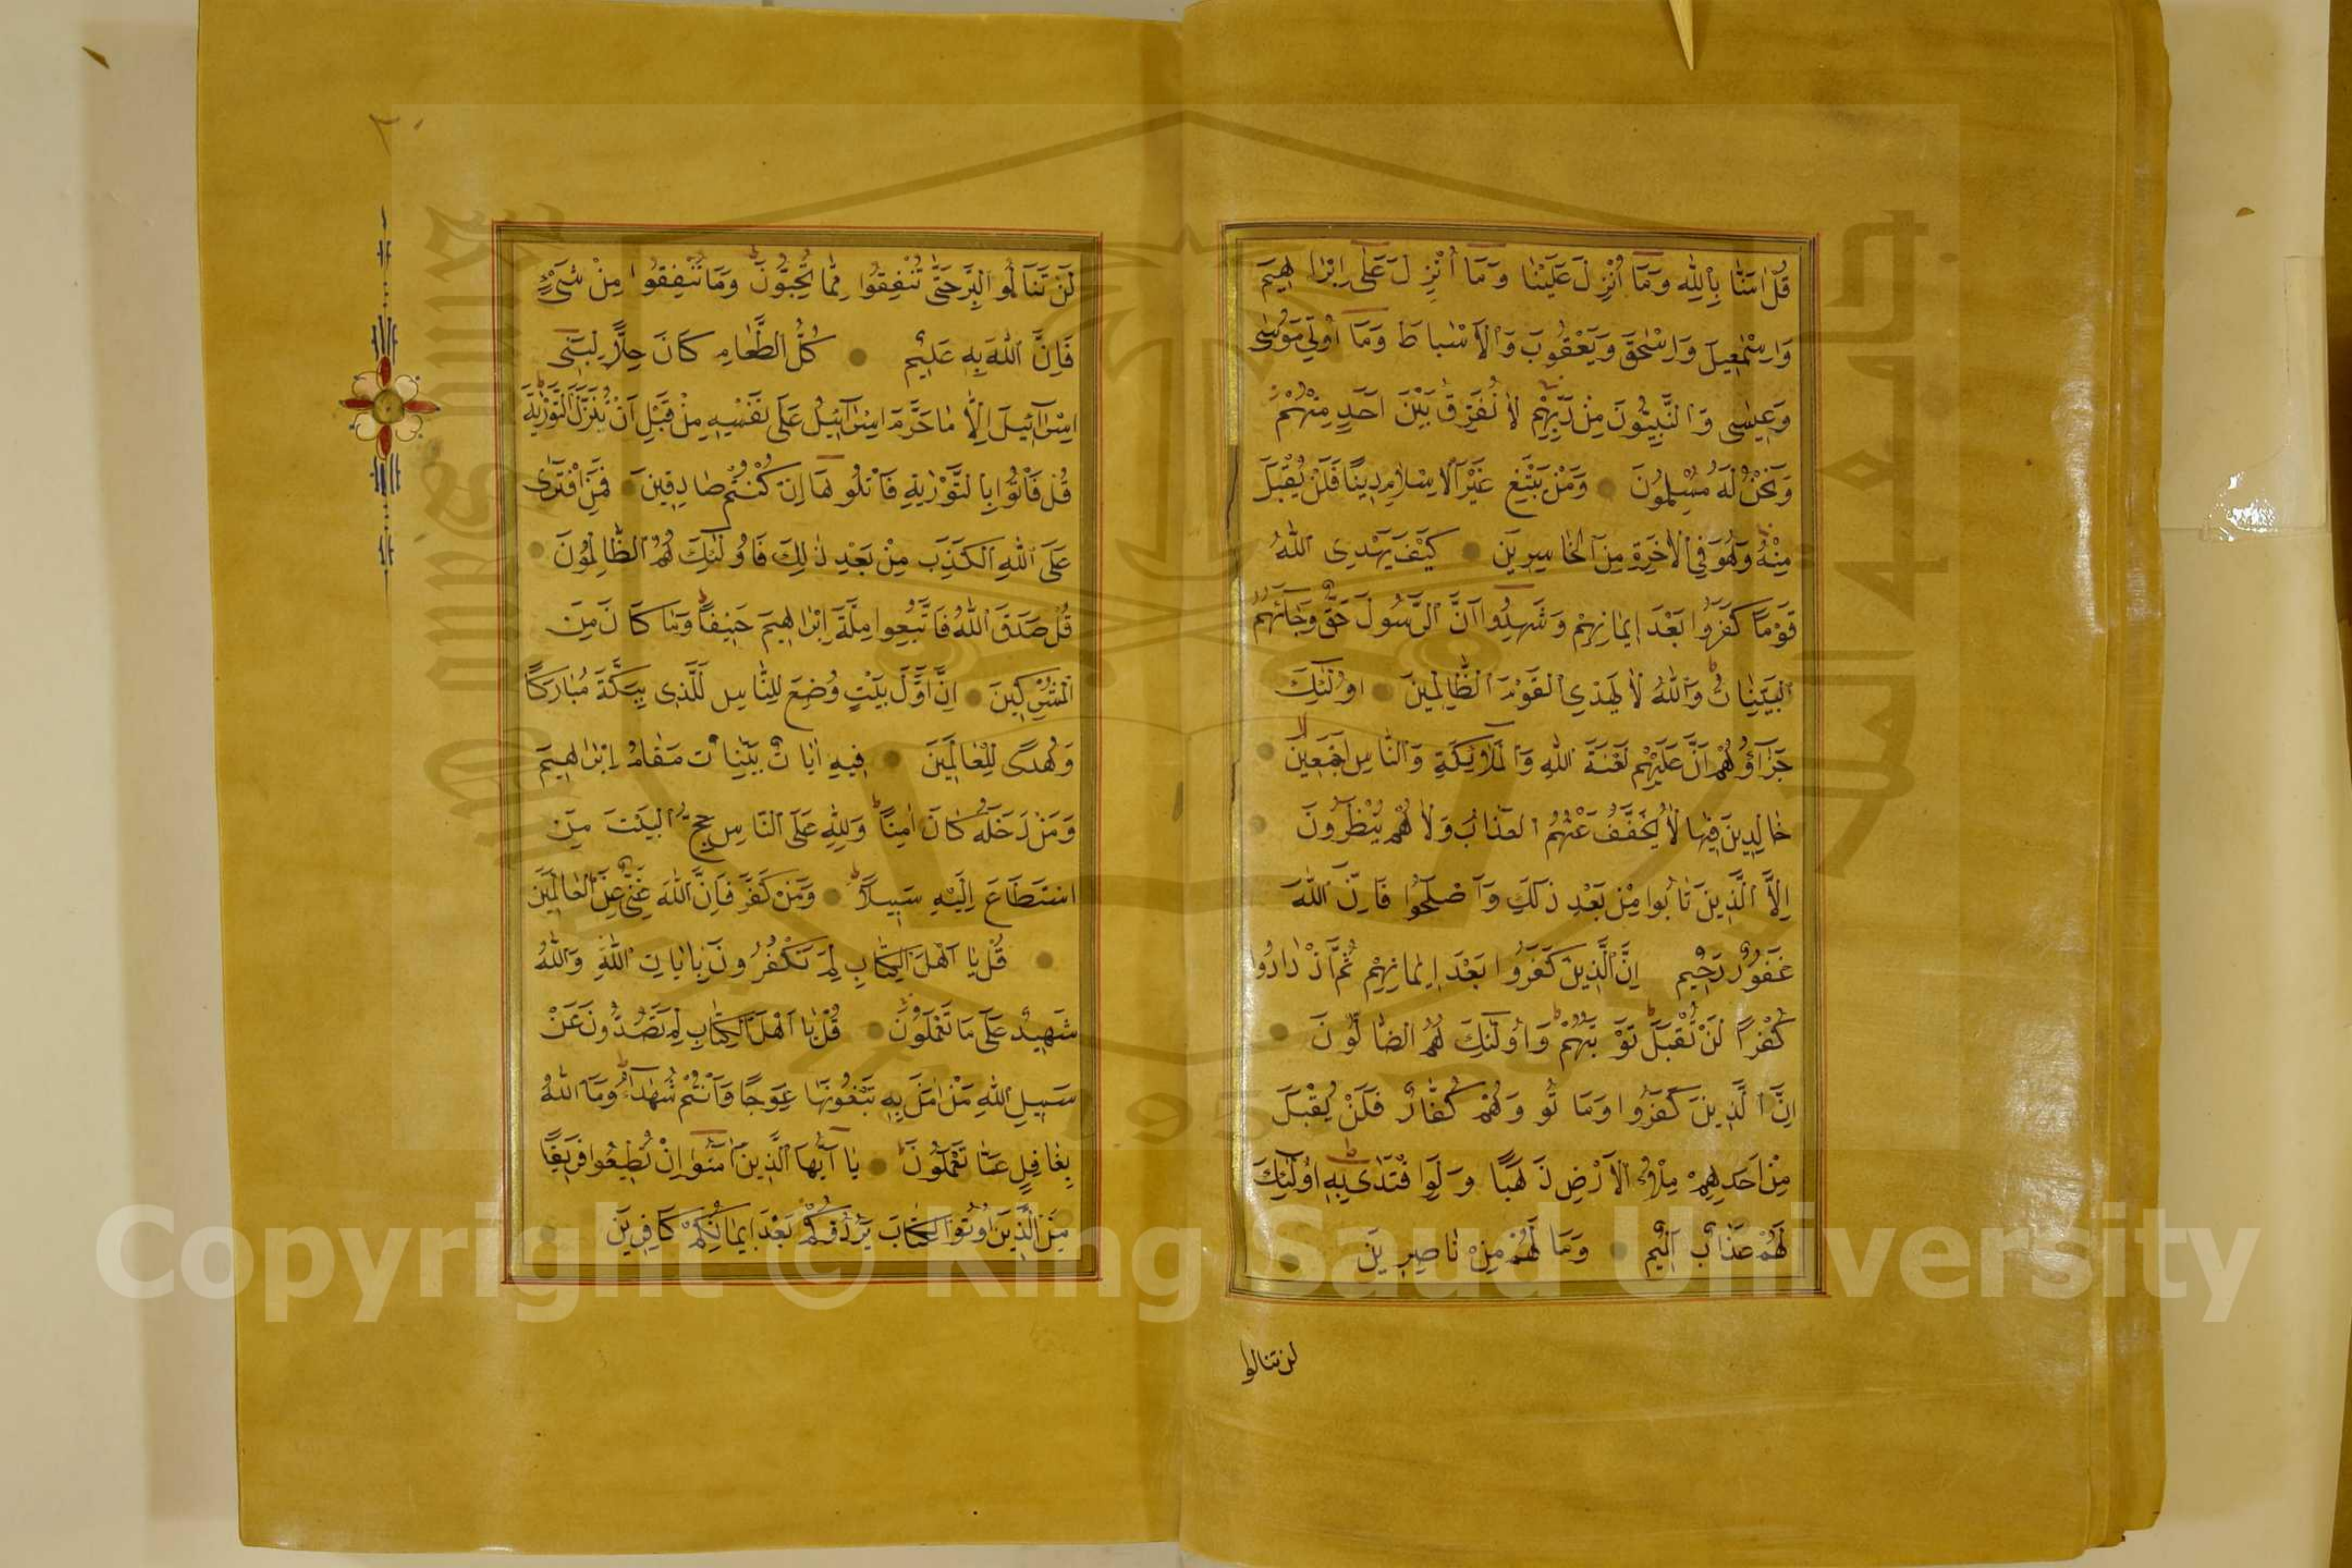 قُلْ اٰمَنَّا بِاللّٰهِ وَمَا اُنْزِلَ عَلَيْنَا وَمَا اُنْزِلَ عَلٰى اِبْرٰاهِيمَ
وَاِسْمٰعِيلَ وَاِسْحٰقَ وَيَعْقُوبَ وَالْاَسْبَاطِ وَمَا اُوتِيَ مُوسٰى
وَعِيسٰى وَالنَّبِيُّونَ مِنْ رَبِّهِمْ لَا نُفَرِّقُ بَيْنَ اَحَدٍ مِنْهُمْ
وَنَحْنُ لَهُ مُسْلِمُونَ وَمَنْ يَبْتَغِ غَيْرَ الْاِسْلَامِ دِينًا فَلَنْ يُقْبَلَ
مِنْهُ وَهُوَ فِي الْاٰخِرَةِ مِنَ الْخَاسِرِينَ كَيْفَ يَهْدِي اللّٰهُ
قَوْمًا كَفَرُوا بَعْدَ اِيمَانِهِمْ وَشَهِدُوا اَنَّ الرَّسُولَ حَقٌّ وَجَاۤءَهُمُ
الْبَيِّنَاتُ وَاللّٰهُ لَا يَهْدِي الْقَوْمَ الظَّالِمِينَ اُولٰۤئِكَ
جَزَاۤؤُهُمْ اَنَّ عَلَيْهِمْ لَعْنَةَ اللّٰهِ وَالْمَلَاۤئِكَةِ وَالنَّاسِ اَجْمَعِينَ
خَالِدِينَ فِيهَا لَا يُخَفَّفُ عَنْهُمُ الْعَذَابُ وَلَا هُمْ يُنْظَرُونَ
اِلَّا الَّذِينَ تَابُوا مِنْ بَعْدِ ذٰلِكَ وَاَصْلَحُوا فَاِنَّ اللّٰهَ
غَفُورٌ رَحِيمٌ اِنَّ الَّذِينَ كَفَرُوا بَعْدَ اِيمَانِهِمْ ثُمَّ ازْدَادُوا
كُفْرًا لَنْ تُقْبَلَ تَوْبَتُهُمْ وَاُولٰۤئِكَ هُمُ الضَّاۤلُّونَ
اِنَّ الَّذِينَ كَفَرُوا وَمَاتُوا وَهُمْ كُفَّارٌ فَلَنْ يُقْبَلَ
مِنْ اَحَدِهِمْ مِلْءُ الْاَرْضِ ذَهَبًا وَلَوِ افْتَدٰى بِهِ اُولٰۤئِكَ
لَهُمْ عَذَابٌ اَلِيمٌ وَمَا لَهُمْ مِنْ نَاصِرِينَ
لن تنالوا
٢٠
لَنْ تَنَالُوا الْبِرَّ حَتّٰى تُنْفِقُوا مِمَّا تُحِبُّونَ وَمَا تُنْفِقُوا مِنْ شَيْءٍ
فَاِنَّ اللّٰهَ بِهِ عَلِيمٌ كُلُّ الطَّعَامِ كَانَ حِلًّا لِبَنِي
اِسْرَاۤئِيلَ اِلَّا مَا حَرَّمَ اِسْرَاۤئِيلُ عَلٰى نَفْسِهِ مِنْ قَبْلِ اَنْ تُنَزَّلَ التَّوْرٰيةُ
قُلْ فَأْتُوا بِالتَّوْرٰيةِ فَاتْلُوهَا اِنْ كُنْتُمْ صَادِقِينَ فَمَنِ افْتَرٰى
عَلَى اللّٰهِ الْكَذِبَ مِنْ بَعْدِ ذٰلِكَ فَاُولٰۤئِكَ هُمُ الظَّالِمُونَ
قُلْ صَدَقَ اللّٰهُ فَاتَّبِعُوا مِلَّةَ اِبْرٰاهِيمَ حَنِيفًا وَمَا كَانَ مِنَ
الْمُشْرِكِينَ اِنَّ اَوَّلَ بَيْتٍ وُضِعَ لِلنَّاسِ لَلَّذِي بِبَكَّةَ مُبَارَكًا
وَهُدًى لِلْعَالَمِينَ فِيهِ اٰيَاتٌ بَيِّنَاتٌ مَقَامُ اِبْرٰاهِيمَ
وَمَنْ دَخَلَهُ كَانَ اٰمِنًا وَلِلّٰهِ عَلَى النَّاسِ حِجُّ الْبَيْتِ مَنِ
اسْتَطَاعَ اِلَيْهِ سَبِيلًا وَمَنْ كَفَرَ فَاِنَّ اللّٰهَ غَنِيٌّ عَنِ الْعَالَمِينَ
قُلْ يَا اَهْلَ الْكِتَابِ لِمَ تَكْفُرُونَ بِاٰيَاتِ اللّٰهِ وَاللّٰهُ
شَهِيدٌ عَلٰى مَا تَعْمَلُونَ قُلْ يَا اَهْلَ الْكِتَابِ لِمَ تَصُدُّونَ عَنْ
سَبِيلِ اللّٰهِ مَنْ اٰمَنَ بِهِ تَبْغُونَهَا عِوَجًا وَاَنْتُمْ شُهَدَاۤءُ وَمَا اللّٰهُ
بِغَافِلٍ عَمَّا تَعْمَلُونَ يَا اَيُّهَا الَّذِينَ اٰمَنُوا اِنْ تُطِيعُوا فَرِيقًا
مِنَ الَّذِينَ اُوتُوا الْكِتَابَ يَرُدُّوكُمْ بَعْدَ اِيمَانِكُمْ كَافِرِينَ
Copyright © King Saud University
1957